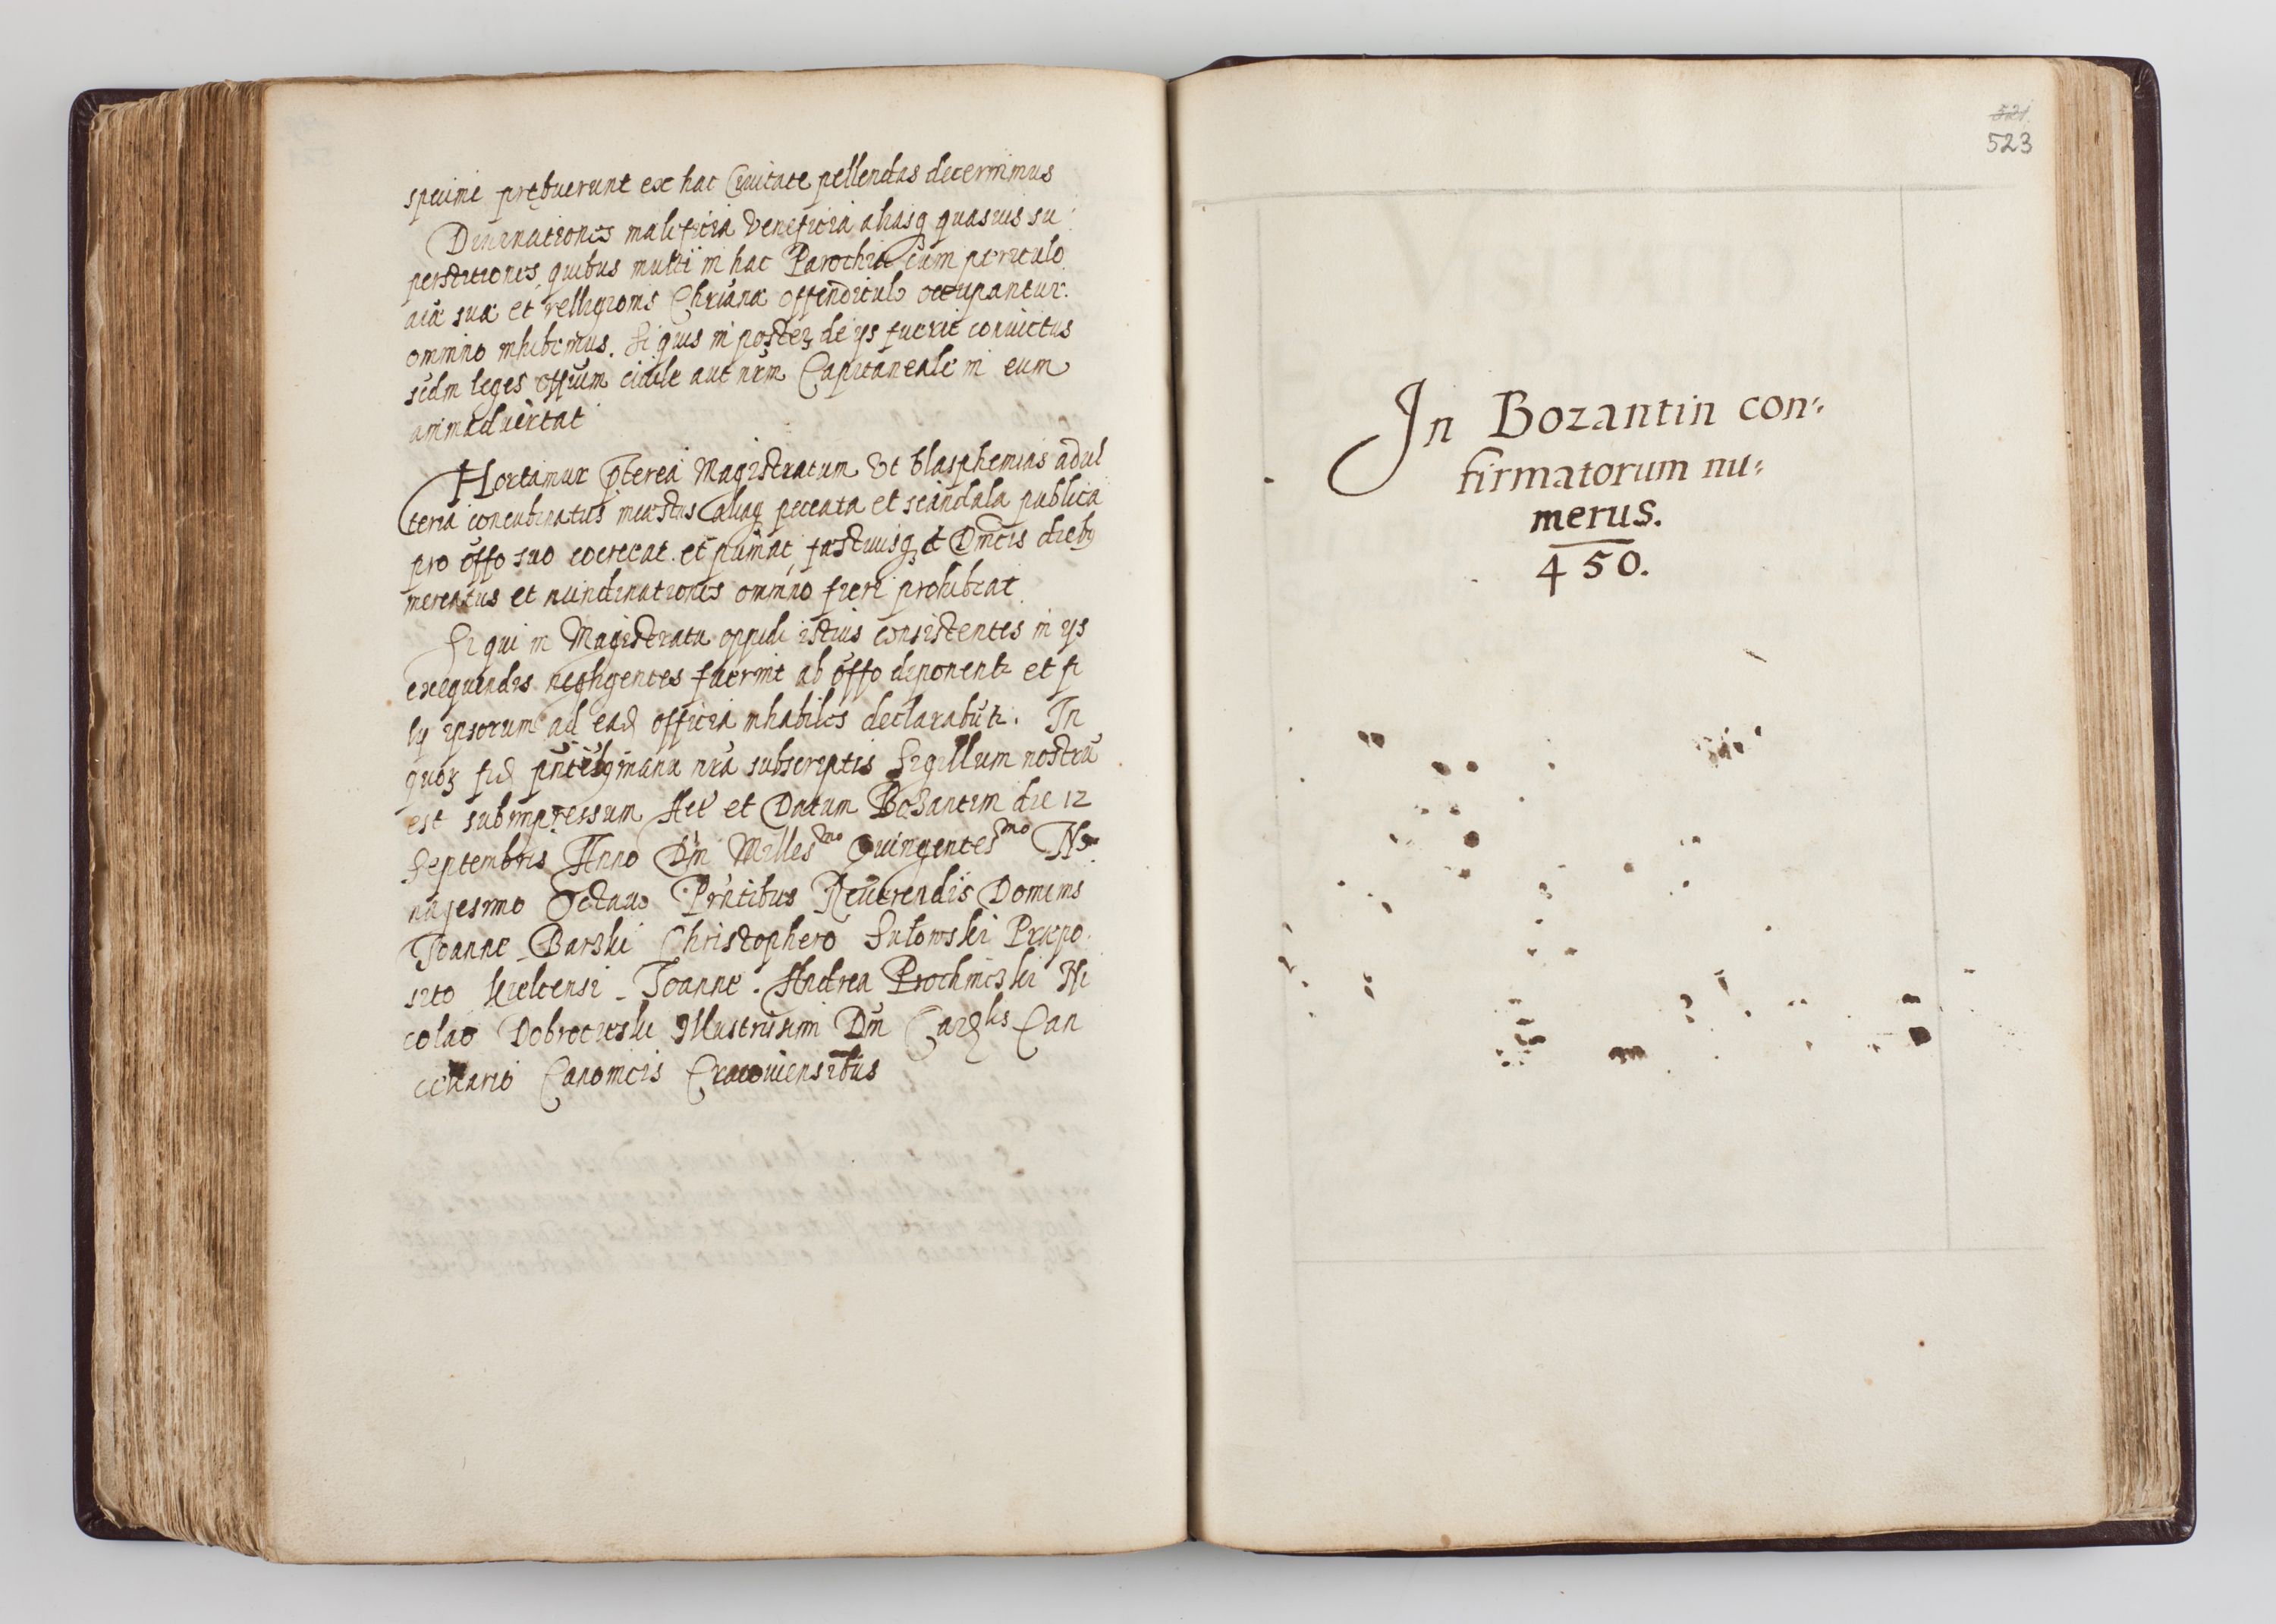 specime prębuerunt ex hac Ciuitate pellendas decernimus
Diuinationes maleficia veneficia aliasq quasuis su
perstitiones, quibus multi in hac Parochia cum periculo
aiæ suæ et relligionis Chrianæ offendiculo occupantur.
omnino inhibemus. Si quis in poster de ijs fuerit conuictus
scdm leges offium ciuile aut nrm Capitaneale in eum
animaduertat
Hortamur pterea Magistratum vt blasphemias adul
teria concubinatus incestus aliaq peccata et scandala publica
pro offo suo coerceat et puniat, festiuisq et Dnicis dieb9
mercatus et nundinationes omnino fieri prohibeat
Si qui in Magistratu oppidi istius consistentes in ijs
exequendis negligentes fuerint ab offo deponentr et fi
lij ipsorum ad ead officia inhabiles declarabutr. In
quor fid pntib9 manu nra subscriptis Sigillum nostru
est subimpressum Act et Datum Bozantin die 12
Septembris Anno Dni Milles mo Quingentes mo No
nagesimo Octauo Prntibus Reuerendis Dominis
Joanne Barski Christophero Sulowski Præpo
sito Kielcensi Joanne Andrea Prochnicski Ni
colao Dobrocieski Illustrissimi Dni Cardlis Can
cellario Canonicis Cracouiensibus
521
523
In Bozantin con:
firmatorum nu:
merus.
450.